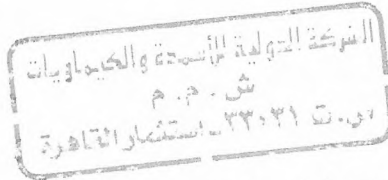 الشركة الدولية للأسمدة والكيماويات
ش . م . م
س. ت ٣٣٠٣١ - استثمار القاهرة